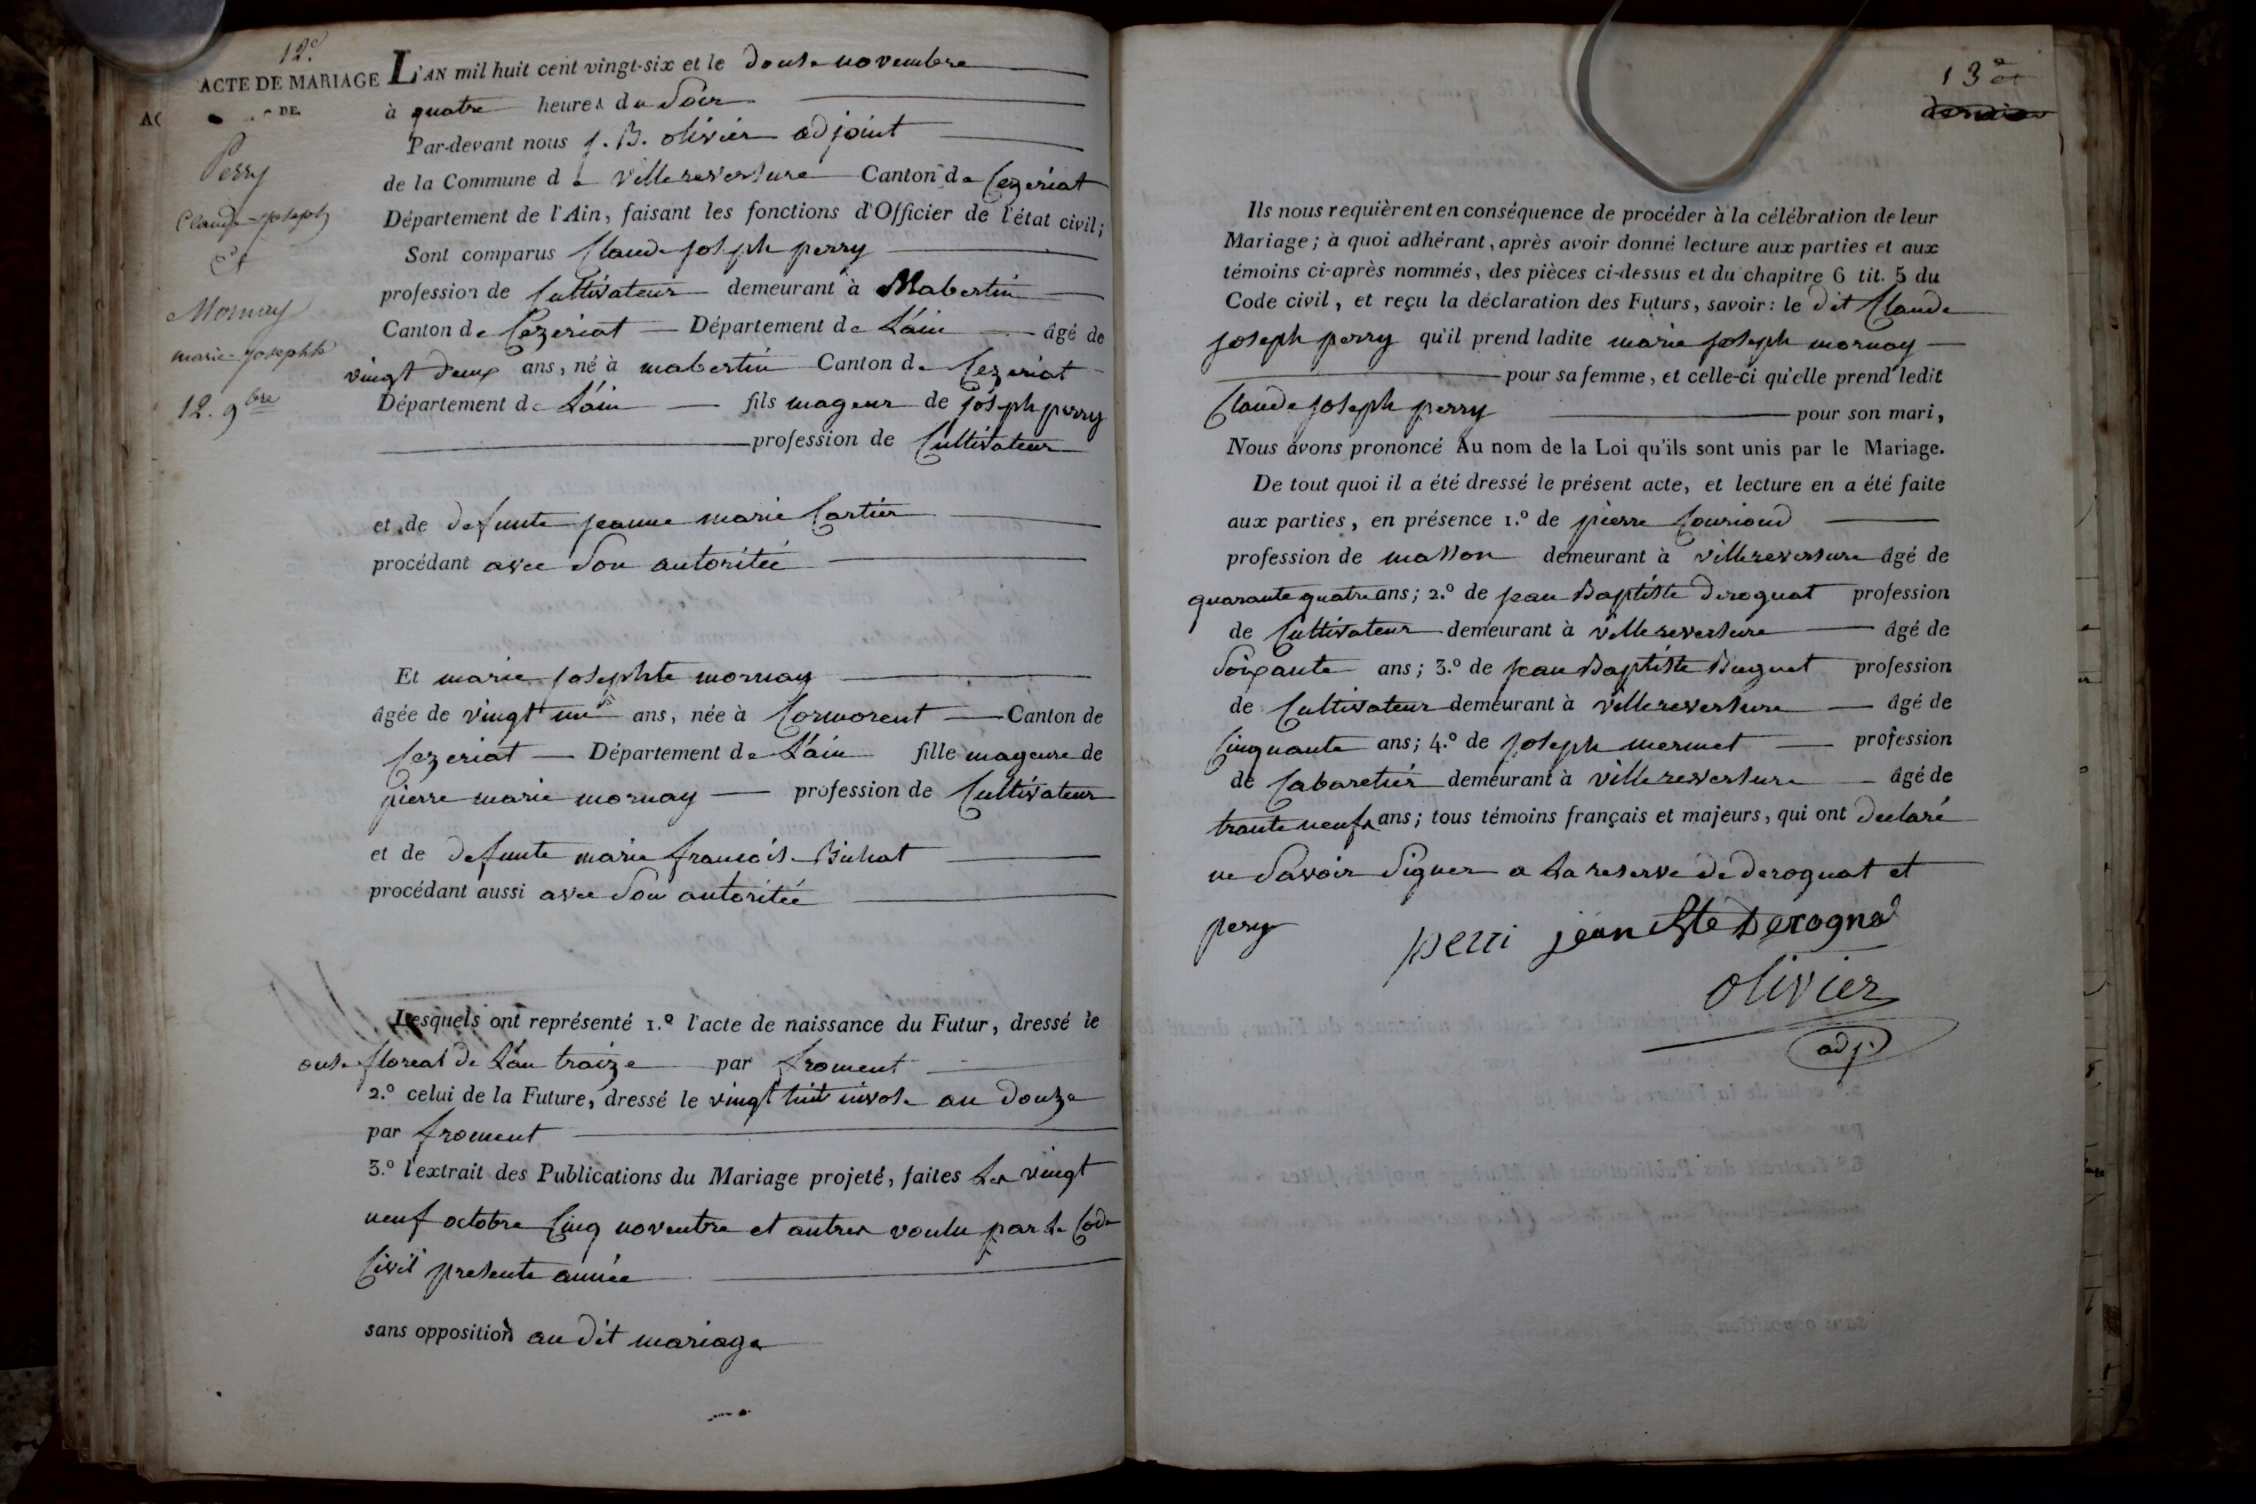 12.e
ACTE DE MARIAGE
DE
AC
Perry
Claude-Joseph
et
Mornay
marie-Josephte
12. 9bre
L'AN mil huit cent vingt-six et le douse novembre
à quatre heures du Soir
Par-devant nous J. B. olivier adjoint
de la Commune d e villereversure Canton de Cezeriat
Département de l'Ain, faisant les fonctions d'Officier de l'état civil;
Sont comparus Claude Joseph perry
profession de Cultivateur demeurant à Mabertin
Canton de Cezeriat Département de L'ain âgé de
vingt deux ans, né à mabertin Canton de Cezeriat
Département de L'ain fils mageur de joseph perry
profession de Cultivateur
et de defunte jeanne marie Cartier
procédant avec Son autoritée
Et marie josephte mornay
âgée de vingt un ans, née à Cormorent Canton de
Cezeriat Département de L'ain fille mageure de
pierre marie mornay profession de Cultivateur
et de defunte marie françoise Bichat
procédant aussi avec Son autoritée
Lesquels ont représenté 1.º l'acte de naissance du Futur, dressé le
onse floreal de L'an traize par froment
2.º celui de la Future, dressé le vingt huit nivose an douze
par froment
3.º l'extrait des Publications du Mariage projeté, faites Les vingt
neuf octobre Cinq novembre et autres voulu par le Code
Civil presente année
sans opposition au dit mariage
13e et
dernier
Ils nous requièrent en conséquence de procéder à la célébration de leur
Mariage; à quoi adhérant, après avoir donné lecture aux parties et aux
témoins ci-après nommés, des pièces ci-dessus et du chapitre 6 tit. 5 du
Code civil, et reçu la déclaration des Futurs, savoir: le dit Claude
joseph perry qu'il prend ladite marie joseph mornay
pour sa femme, et celle-ci qu'elle prend ledit
Claude joseph perry pour son mari,
Nous avons prononcé Au nom de la Loi qu'ils sont unis par le Mariage.
De tout quoi il a été dressé le présent acte, et lecture en a été faite
aux parties, en présence 1.º de pierre Courioud
profession de masson demeurant à villereversure âgé de
quarante quatre ans; 2.º de jean Baptiste derognat profession
de Cultivateur demeurant à villereversure âgé de
Soixante ans; 3.º de jean Baptiste Buguet profession
de Cultivateur demeurant à villereversure âgé de
Cinquante ans; 4.º de joseph mermet profession
de Cabaretier demeurant à villereversure âgé de
trante neuf ans; tous témoins français et majeurs, qui ont declaré
ne Savoir Signer a La reserve de derognat et
pery
perri jean Bte Derognat
olivier
adj.